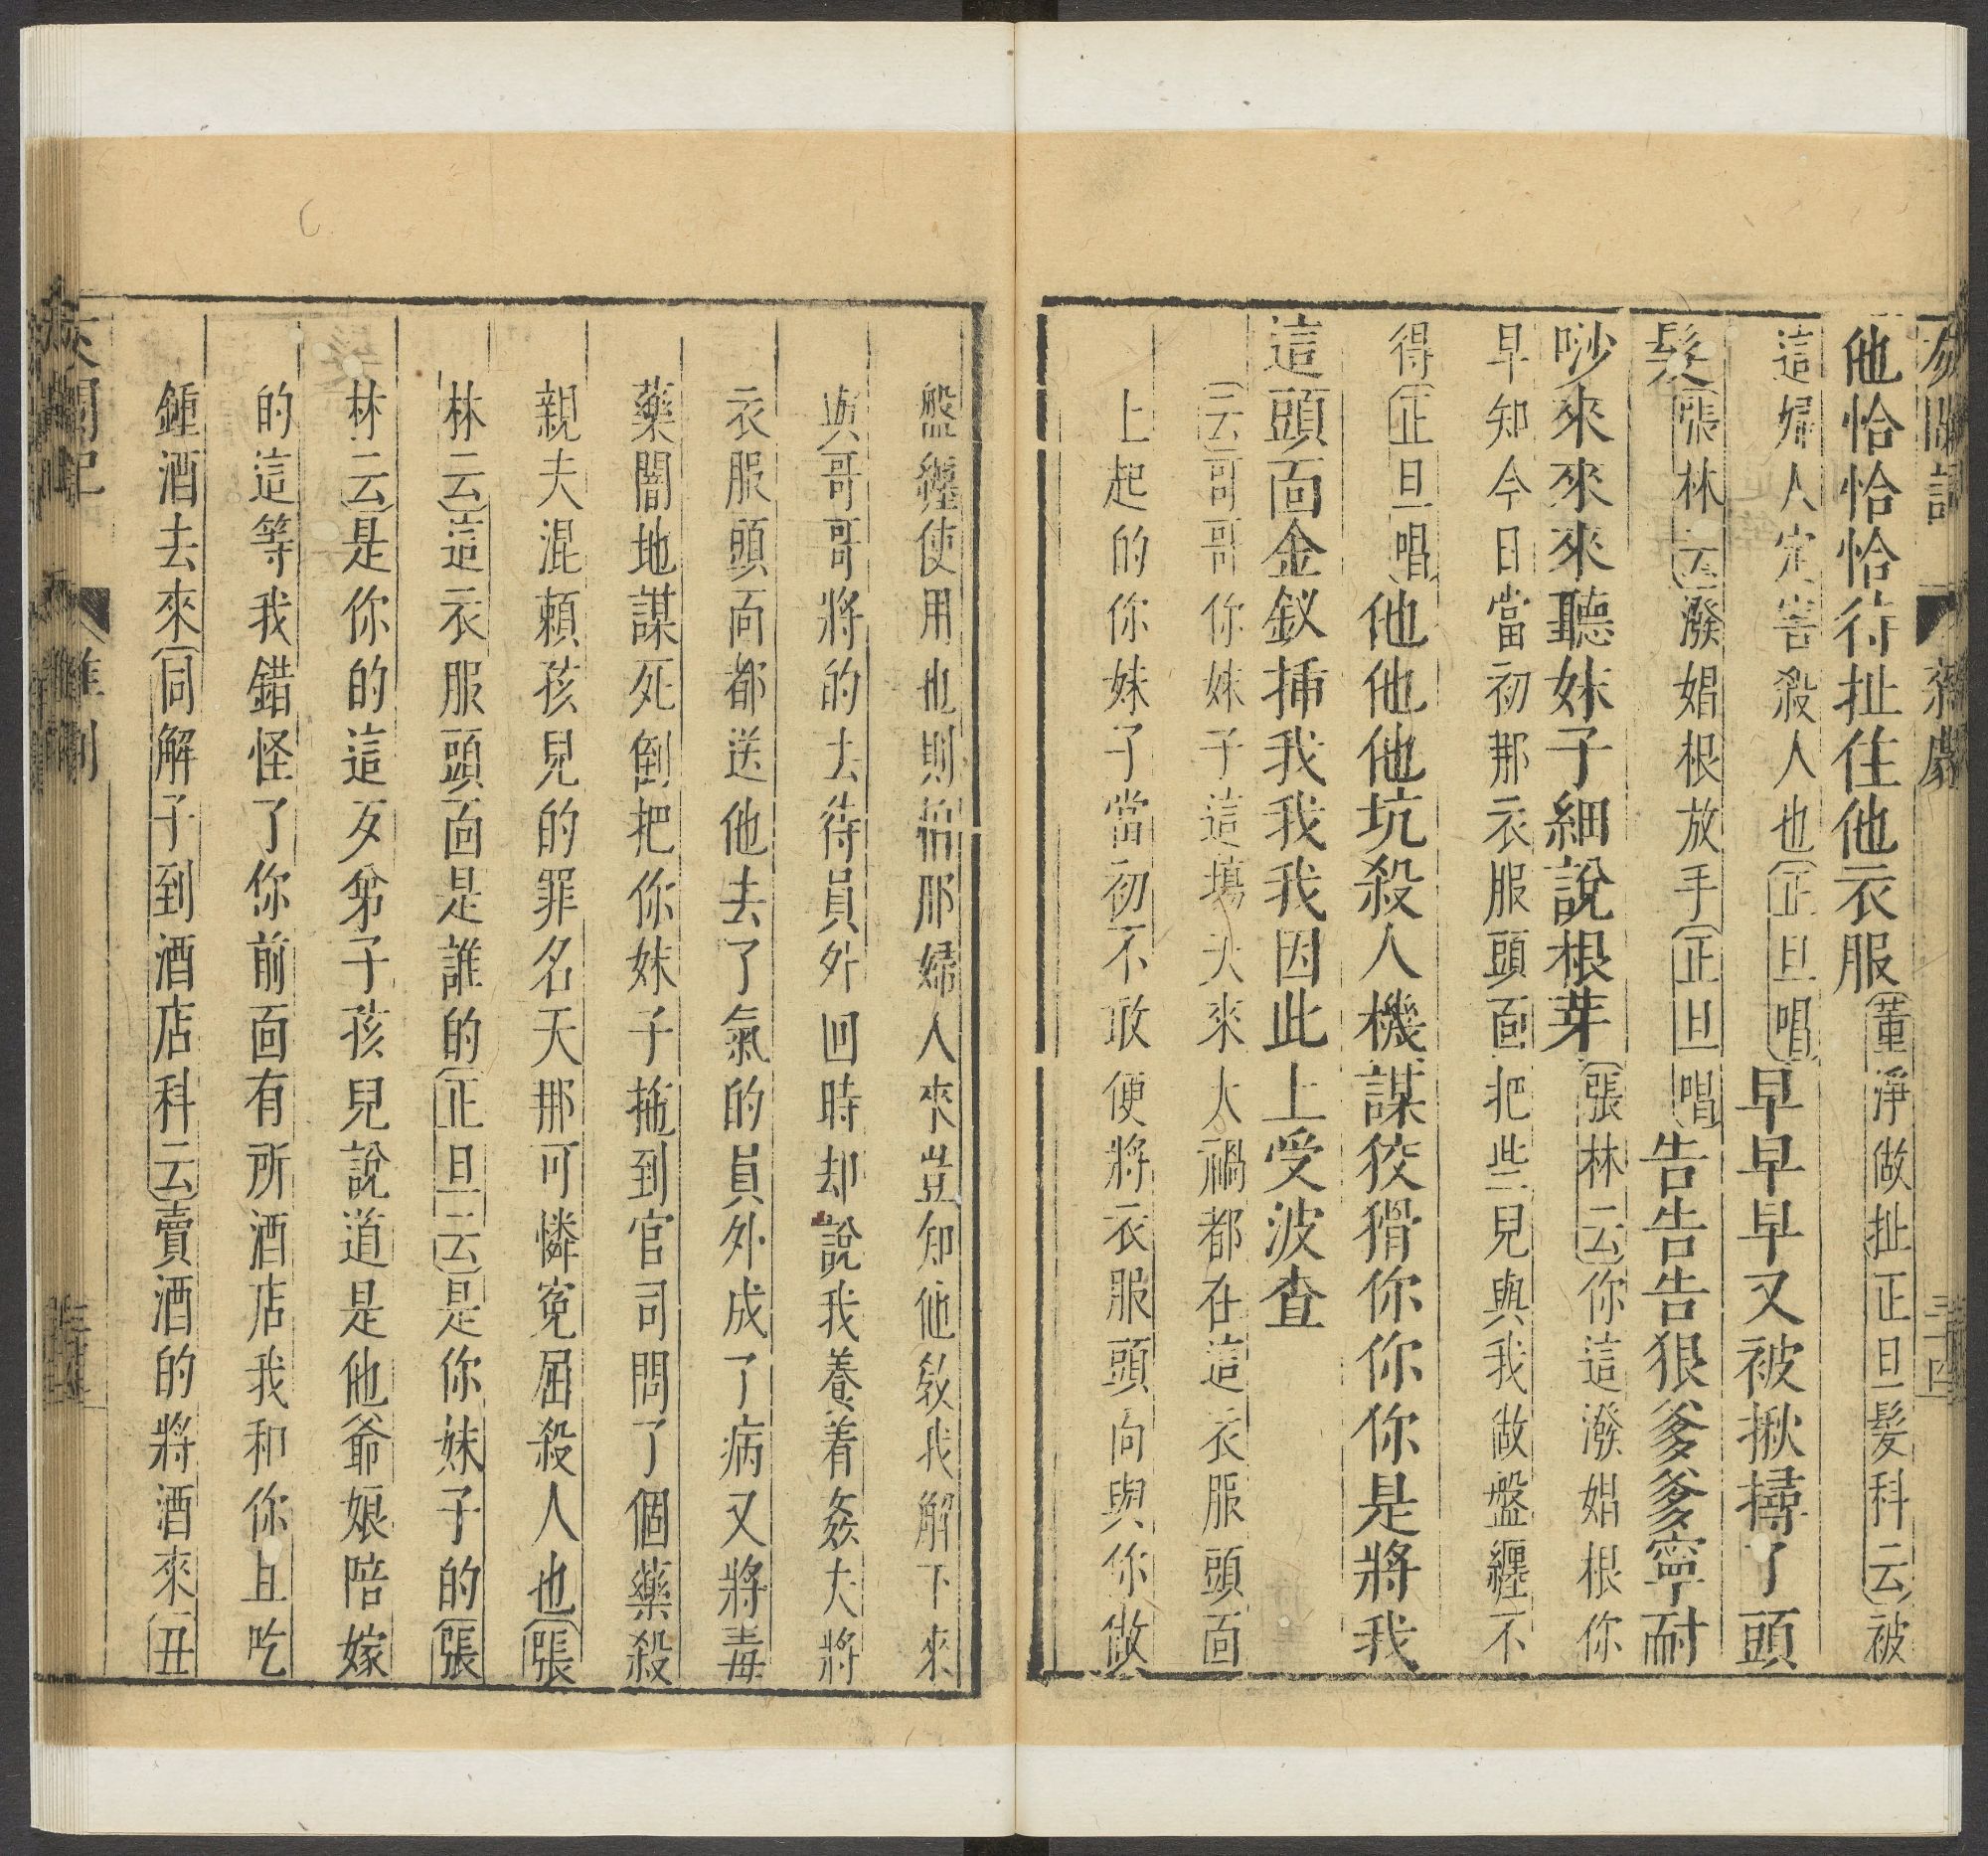 灰闌記 雜劇 三十四
他恰恰恰待扯住他衣服(董淨做扯正旦髮科云)被
這婦人定害殺人也(正旦唱)早早早又被揪撏了頭
髮(張林云)潑娼根放手(正旦唱)告告告狠爹爹寧耐
唦來來來聽妹子細說根芽(張林云)你這潑娼根你
早知今日當初那衣服頭面把些兒與我做盤纏不
得(正旦唱)他他他坑殺人機謀狡猾你你你是將我
這頭面金釵揷我我我因此上受波查
(云)哥哥你妹子這塲天來大禍都在這衣服頭面
上起的你妹子當初不敢便將衣服頭面與你做
盤纏使用也則怕那婦人來豈知他教我解下來
與哥哥將的去待員外回時却說我養着姦夫將
衣服頭面都送他去了氣的員外成了病又將毒
藥闇地謀死倒把你妹子拖到官司問了個藥殺
親夫混賴孩兒的罪名天那可憐寃屈殺人也(張
林云)這衣服頭面是誰的(正旦云)是你妹子的(張
林云)是你的這歹弟子孩兒說道是他爺娘陪嫁
的這等我錯怪了你前面有所酒店我和你且吃
鍾酒去來(同解子到酒店科云)賣酒的將酒來(丑
灰闌記 雜劇